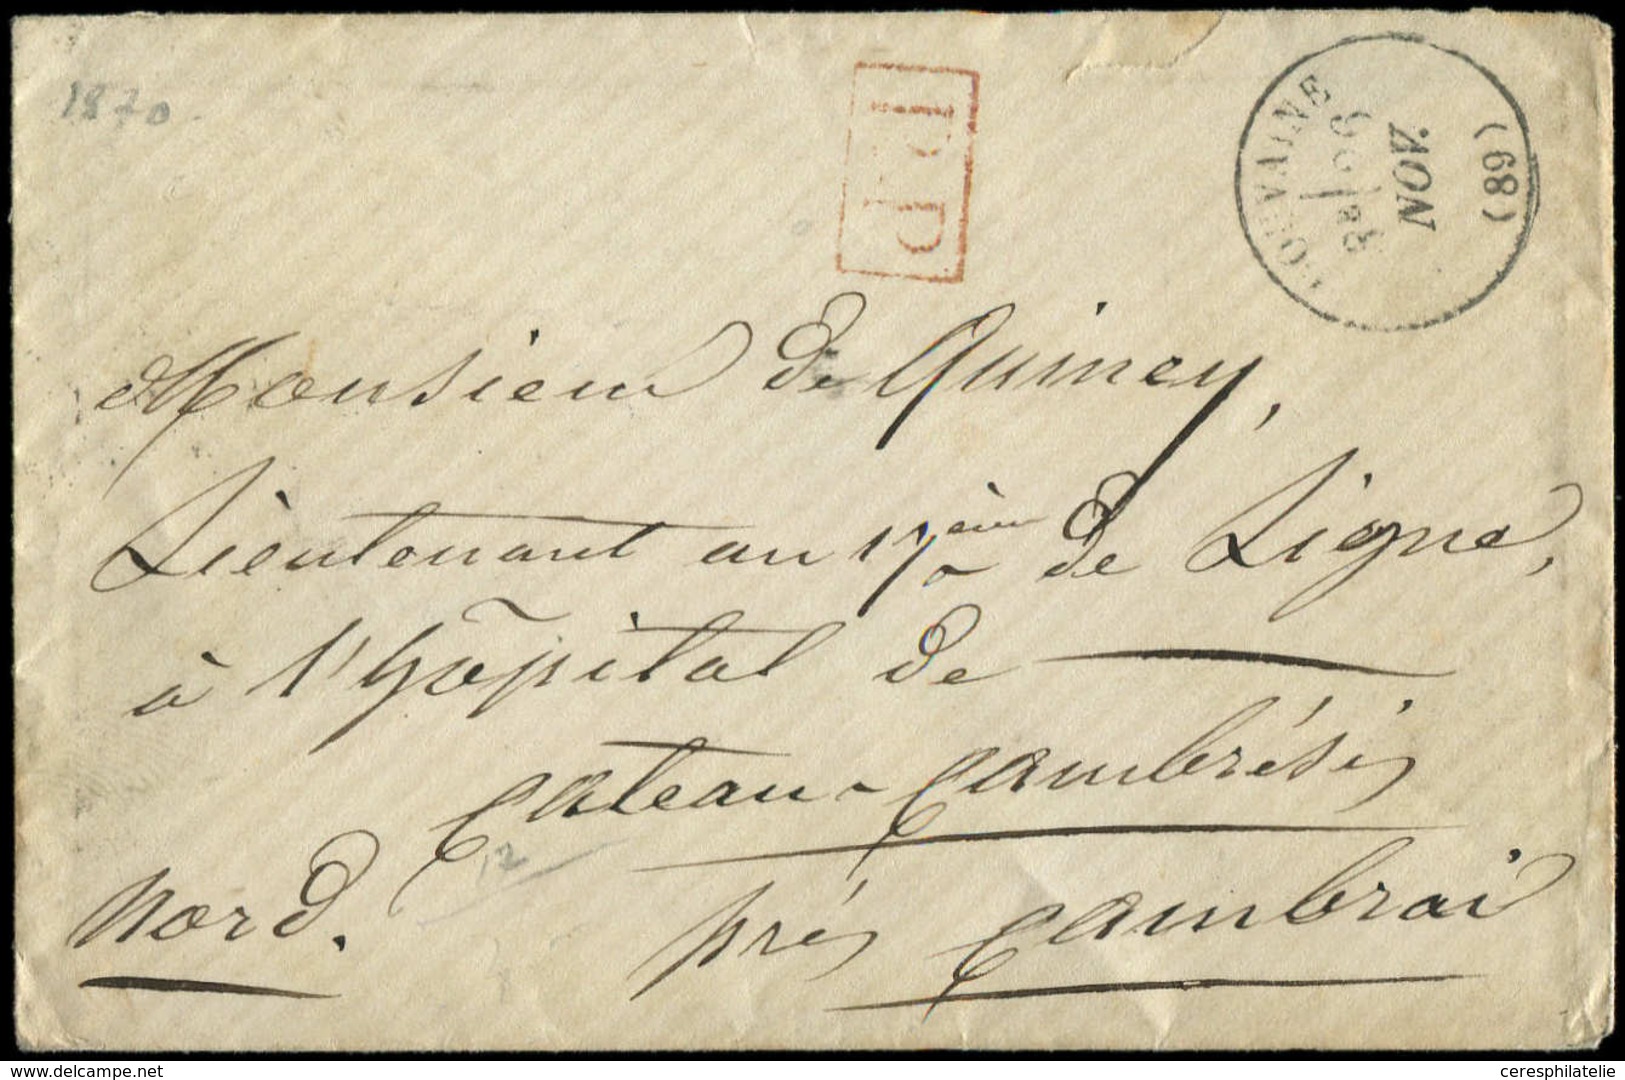 1870
P.P.
DOUVAINE
(89)
NOV.
Monsieur de Quincy,
Lieutenant au 17ème de Ligne,
à l'hôpital de
Cateau-Cambrésis
12
Nord. près Cambrai
delcampe.net
ceresphilatelie